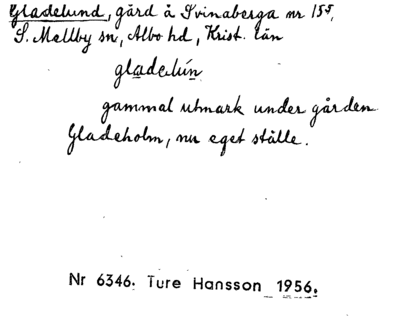 Gladelund, gård å Svinaberga nr 15⁵,
S. Mellby sn, Albo hd, Krist. län
gladelún
gammal utmark under gården
Gladeholm, nu eget ställe.
Nr 6346. Ture Hansson 1956.